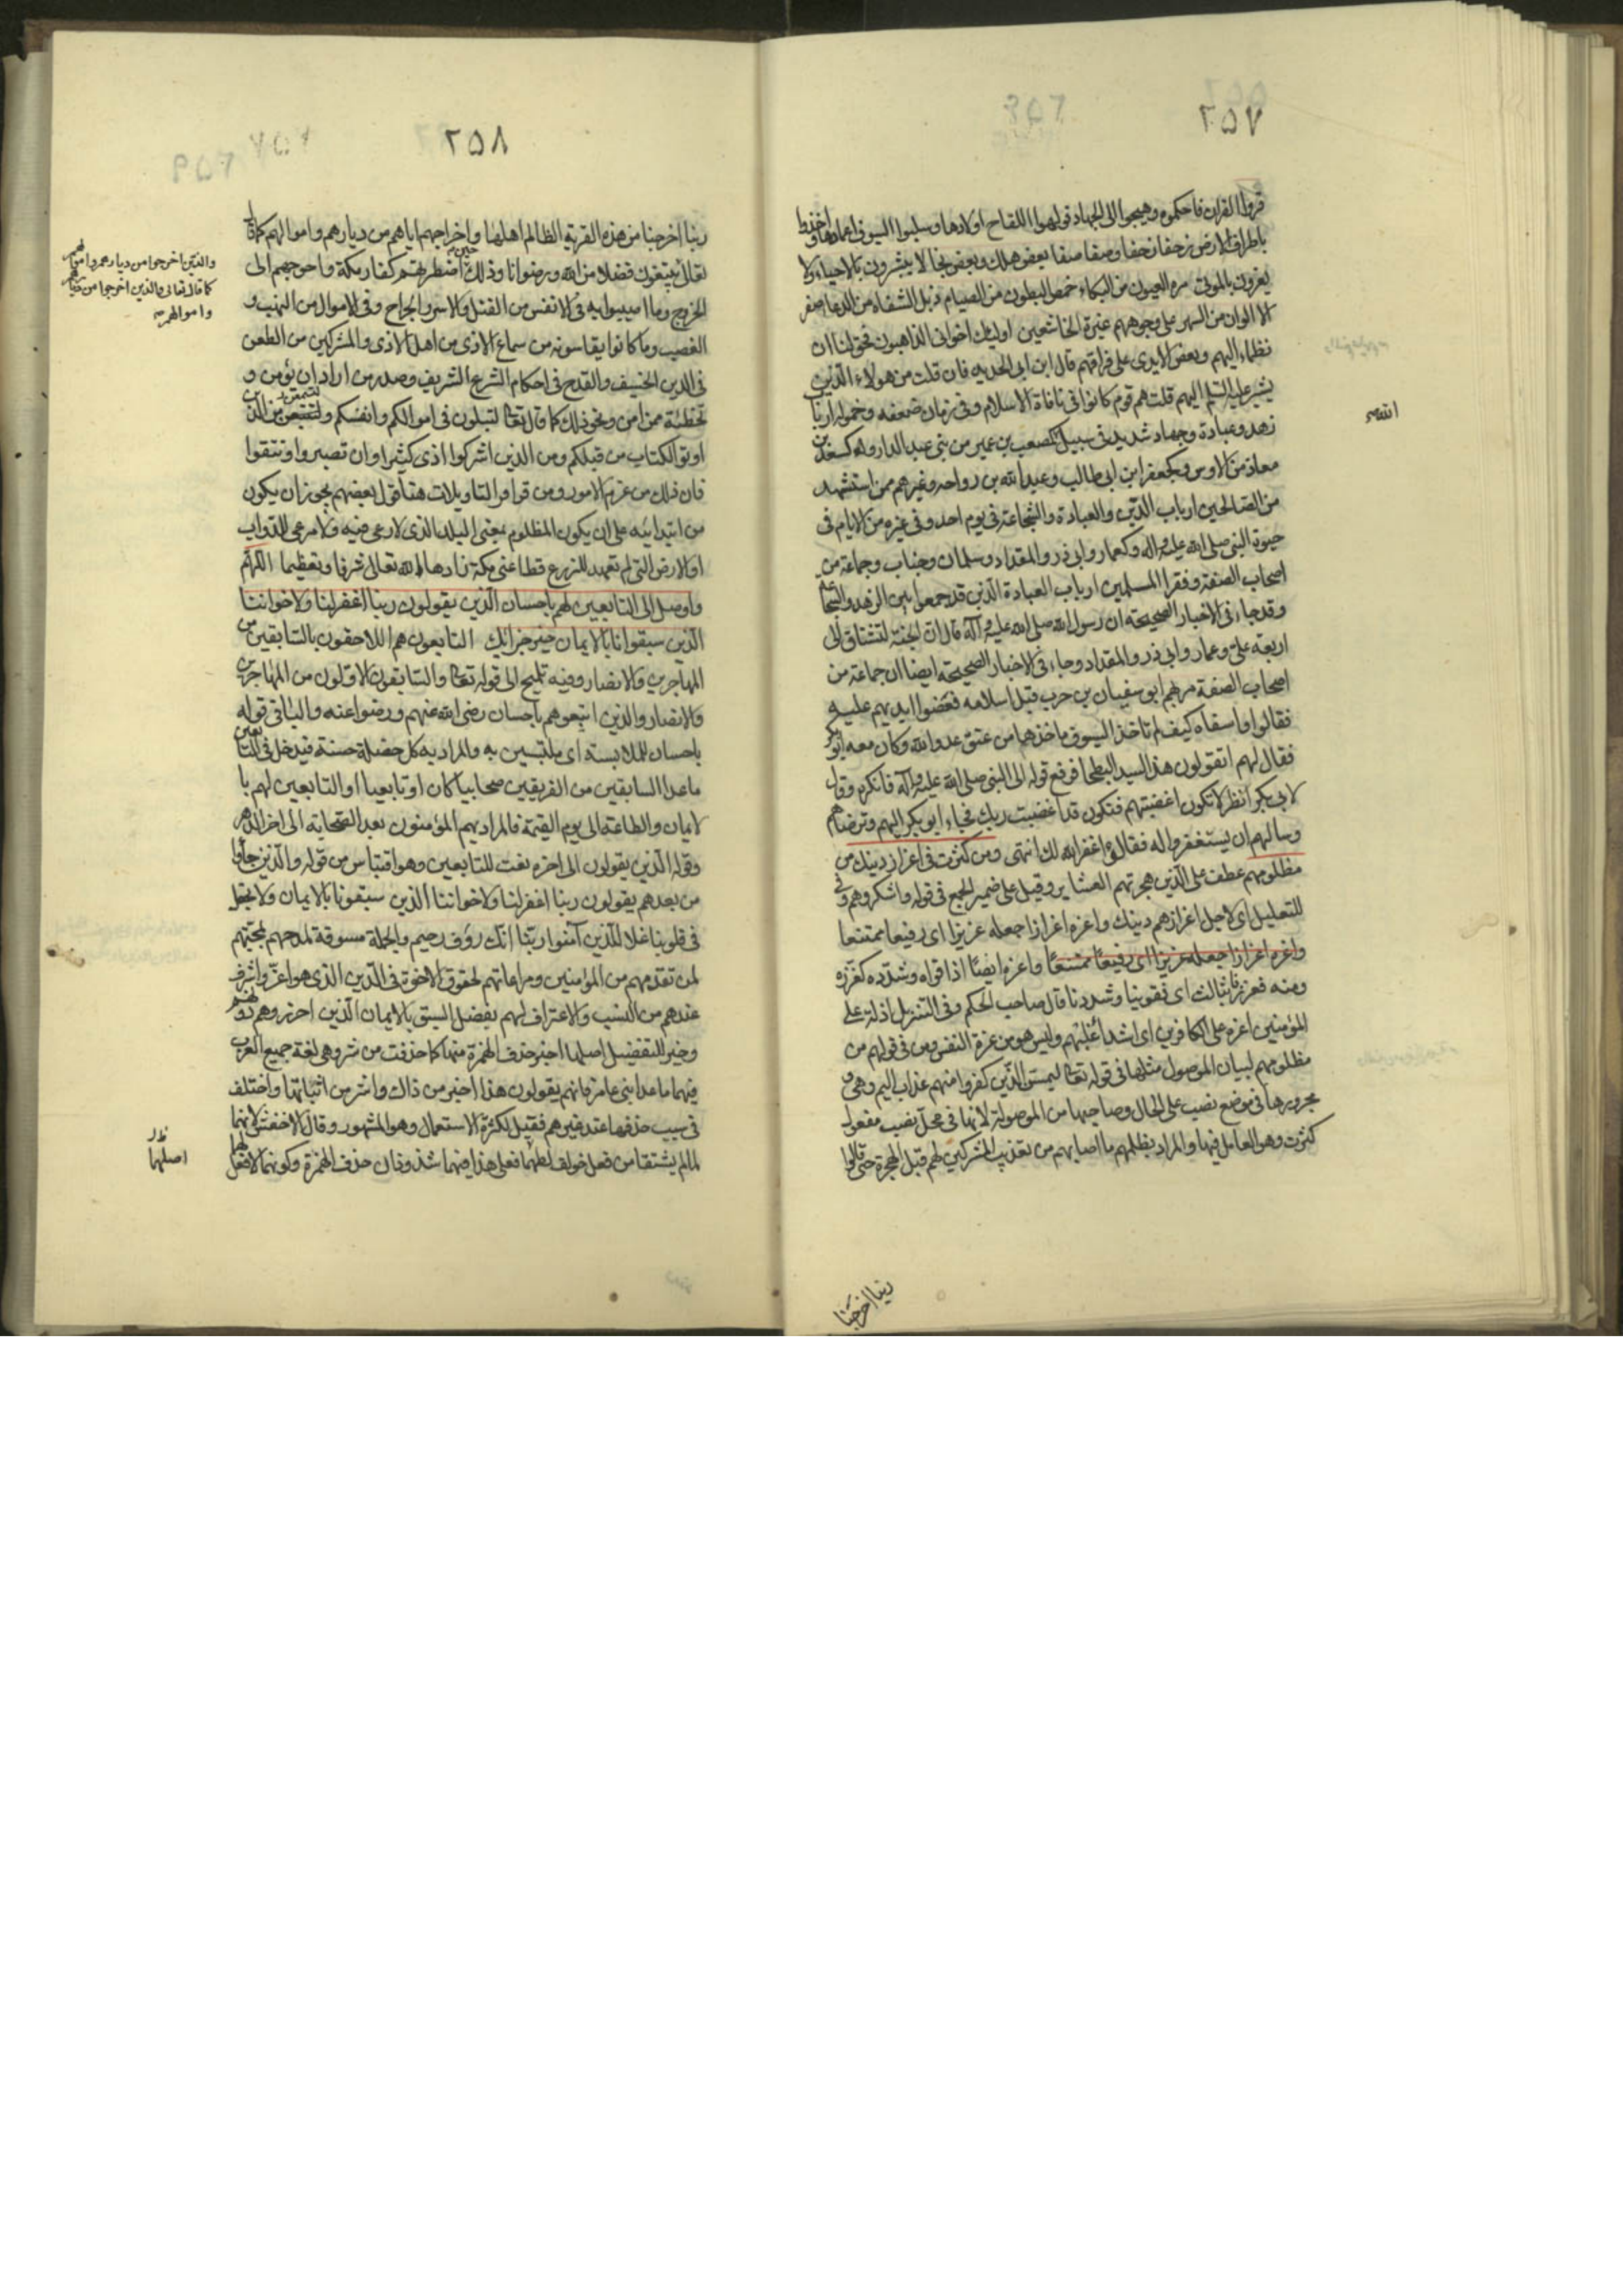 ٢٥٧
قرؤا القران فاحكموه وهيجوا الى الجهاد فولهوا اللقاح اولادها وسلبوا السيوف اغمادها واخذوا
باطراف الارض زحفا زحفا وصفا صفا بعض هلك وبعض نجا لا يبشرون بالاحياء ولا
يعزون بالموتى مره العيون من البكاء خمص البطون من الصيام ذبل الشفاه من الدعا صفر
الالوان من السهر على وجوههم غبرة الخاشعين اوليك اخوانى الذاهبون فحق لنا ان
نظماء اليهم ونعض الايدى على فراقهم قال ابن ابى الحديد فان قلت من هولاء الذين
يشير عليه السلم اليهم قلت هم قوم كانوا فى نافاة الاسلام وفى زمان ضعفه وخموله اربا
زهد وعبادة وجهاد شديد فى سبيل الله كمصعب بن عمير من بنى عبد الدار وكسعد بن
معاذ من الاوس وكجعفر ابن ابى طالب وعبد الله بن رواحه وغيرهم ممن استشهد
من الصالحين ارباب الدين والعبادة والشجاعة فى يوم احد وفى غيره من الايام فى
حيوة النبى صلى الله عليه واله وكعمار وابى ذر والمقداد وسلمان وخباب وجماعة من
اصحاب الصفة وفقرا المسلمين ارباب العبادة الذين قد جمعوا بين الزهد والشجاعة
وقد جاء فى الاخبار الصحيحة ان رسول الله صلى الله عليه وآله قال ان الجنة لتشتاق الى
اربعة على وعمار وابى ذر والمقداد وجاء فى الاخبار الصحيحة ايضا ان جماعة من
اصحاب الصفة مر بهم ابو سفيان بن حرب قبل اسلامه فعضوا ايديهم عليه
فقالوا وا اسفاه كيف لم تاخذ السيوف ماخذها من عنق عدو الله وكان معه ابو بكر
فقال لهم اتقولون هذا لسيد البطحا فرفع قوله الى النبى صلى الله عليه واله فانكره وقال
لابى بكر انظر لا تكون اغضبتهم فتكون قد اغضبت ربك فجاء ابو بكر اليهم وترضاهم
وسالهم ان يستغفروا له فقالوا غفر الله لك انتهى ومن كثرت فى اعزاز دينك من
مظلومهم عطف على الذين هجرتهم العشاير وقيل على ضمير الجمع فى قوله واشكرهم وفى
للتعليل اى لاجل اعزازهم دينك واعزه اعزازا جعله عزيزا اى رفيعا ممتنعا
واعزه اعزازا جعله عزيزا اى رفيعا ممتنعا واعزه ايضا اذا قواه وشدده كعززه
ومنه فعززنا بثالث اى فقوينا وشددنا قال صاحب المحكم وفى التنزيل اذلة على
المؤمنين اعزة على الكافرين اى اشداء عليهم وليس هو من عزة النفس ومن فى قولهم من
مظلومهم لبيان الموصول مثلها فى قوله تعالى ليمسن الذين كفروا منهم عذاب اليم وهى و
مجرورها فى موضع نصب على الحال وصاحبها من الموصولة لانها فى محل نصب مفعول
كثرت وهو العامل فيها والمراد بظلمهم ما اصابهم من تعذيب المشركين لهم قبل الهجرة حتى قالوا
ربنا اخرجنا
٢٥٨
ربنا اخرجنا من هذه القرية الظالم اهلها واخراجهم اياهم من ديارهم واموالهم كما قال
تعالى يبتغون فضلا من الله ورضوانا وذلك حين اضطرهم كفار مكة واحوجهم الى
الخروج وما اصيبوا به فى الانفس من القتل والاسر والجراح وفى الاموال من النهب و
الغصب وما كانوا يقاسونه من سماع الاذى من اهل الاذى والمشركين من الطعن
فى الدين الحنيف والقدح فى احكام الشرع الشريف وصد من اراد ان يؤمن و
تخطئة من امن ونحو ذلك كما قال تعالى لتبلون فى اموالكم وانفسكم ولتسمعن من الذين
اوتوا الكتاب من قبلكم ومن الذين اشركوا اذى كثيرا وان تصبروا وتتقوا
فان ذلك من عزم الامور ومن قوافر التاويلات هنا قول بعضهم يجوز ان يكون
من ابتدائيه على ان يكون المظلوم بمعنى البلد الذى لا رعى فيه ولا مرعى للدواب
او الارض التى لم تعهد للزرع قط اعنى مكة زادها الله تعالى شرفا وتعظيما اللهم
واوصل الى التابعين لهم باحسان الذين يقولون ربنا اغفر لنا ولاخواننا
الذين سبقونا بالايمان خير جزائك التابعون هم اللاحقون بالسابقين من
المهاجرين والانصار وفيه تلميح الى قوله تعالى والسابقون الاولون من المهاجرين
والانصار والذين اتبعوهم باحسان رضى الله عنهم ورضوا عنه والباء فى قوله
باحسان للملابسة اى ملتبسين به والمراد به كل خصلة حسنة فيدخل فى التابعين
ما عدا السابقين من الفريقين صحابيا كان او تابعيا او التابعين لهم با
لايمان والطاعة الى يوم القيمة فالمراد بهم المؤمنون بعد الصحابة الى اخر الدهر
وقوله الذين يقولون الى اخره نعت للتابعين وهو اقتباس من قوله والذين جاؤا
من بعدهم يقولون ربنا اغفر لنا ولاخواننا الذين سبقونا بالايمان ولا تجعل
فى قلوبنا غلا للذين آمنوا ربنا انك رؤف رحيم والجملة مسوقة لمدحهم لمحبتهم
لمن تقدمهم من المؤمنين ومراعاتهم لحقوق الاخوة فى الدين الذى هو اعز واشرف
عندهم من النسب والاعتراف لهم بفضل السبق بالايمان الذين احرزوهم دونهم
وخير للتفضيل اصلها اخير حذف الهمزة منها كما حذفت من شر وهى لغة جميع العرب
فيهما ما عدا بنى عامر فانهم يقولون هذا اخير من ذاك واشر من اثباتها واختلف
فى سبب حذفها عند غيرهم فقيل لكثرة الاستعمال وهو المشهور وقال الاخفش لانهما
لما لم يشتقا من فعل خولف لفظهما فعلى هذا فيهما شذوذان حذف الهمزة وكونهما لا فعل لهما
والذين اخرجوا من ديارهم واموالهم
كما قال تعالى والذين اخرجوا من ديارهم
واموالهم
اصلهما